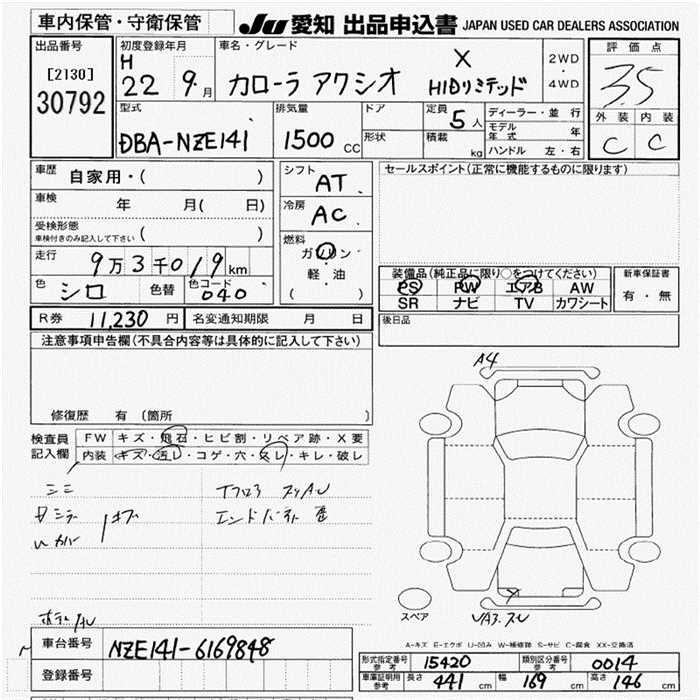 車内保管・守衛保管
JU 愛知 出品申込書 JAPAN USED CAR DEALERS ASSOCIATION
出品番号
[2130]
30792
初度登録年月
H
22 9月
車名・グレード
カローラ アクシオ
X
HIDリミテッド
2WD
・
4WD
評価点
3.5
外装 内装
C C
型式
DBA-NZE141
排気量
1500 CC
ドア
形状
定員 5人
積載 kg
ディーラー・並行
モデル年式 年
ハンドル 左・右
車歴 自家用・( )
車検 年 月( 日)
受検形態
車検付きのみ記入して下さい ( )
走行 9万3千019km
色 シロ 色替 色コード 040
シフト
AT
冷房
AC
燃料
ガソリン
・
軽油
( )
セールスポイント(正常に機能するものに限ります)
装備品(純正品に限り○をつけてください)
PS PW エアB AW
SR ナビ TV カワシート
新車保証書
有・無
R券 11,230 円 名変通知期限 月 日
後日品
注意事項申告欄(不具合内容等は具体的に記入して下さい)
修復歴 有 (箇所
検査員
記入欄
FW キズ・飛石・ヒビ割・リペア跡・X要
内装 キズ・汚レ・コゲ・穴・スレ・キレ・破レ
A4
スペア
A-キズ E-エクボ U-凹み W-補修跡 S-サビ C-腐食 XX-交換済
車台番号 NZE141-6169848
登録番号
形式指定番号
参考
15420
類別区分番号
参考
0014
車庫証明用
参考
長さ 441 cm 幅 169 cm 高さ 146 cm